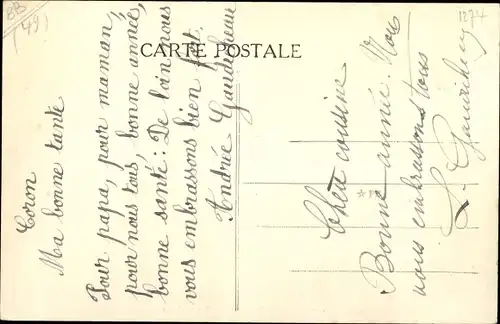 8B
(49)
1274
CARTE POSTALE
Coron
Ma bonne tante
Pour papa, pour maman,
pour nous tous, bonne année,
bonne santé: De loin nous
vous embrassons bien fort.
Andrée
Chère cousine
Bonne année. Nous
vous embrassons tous